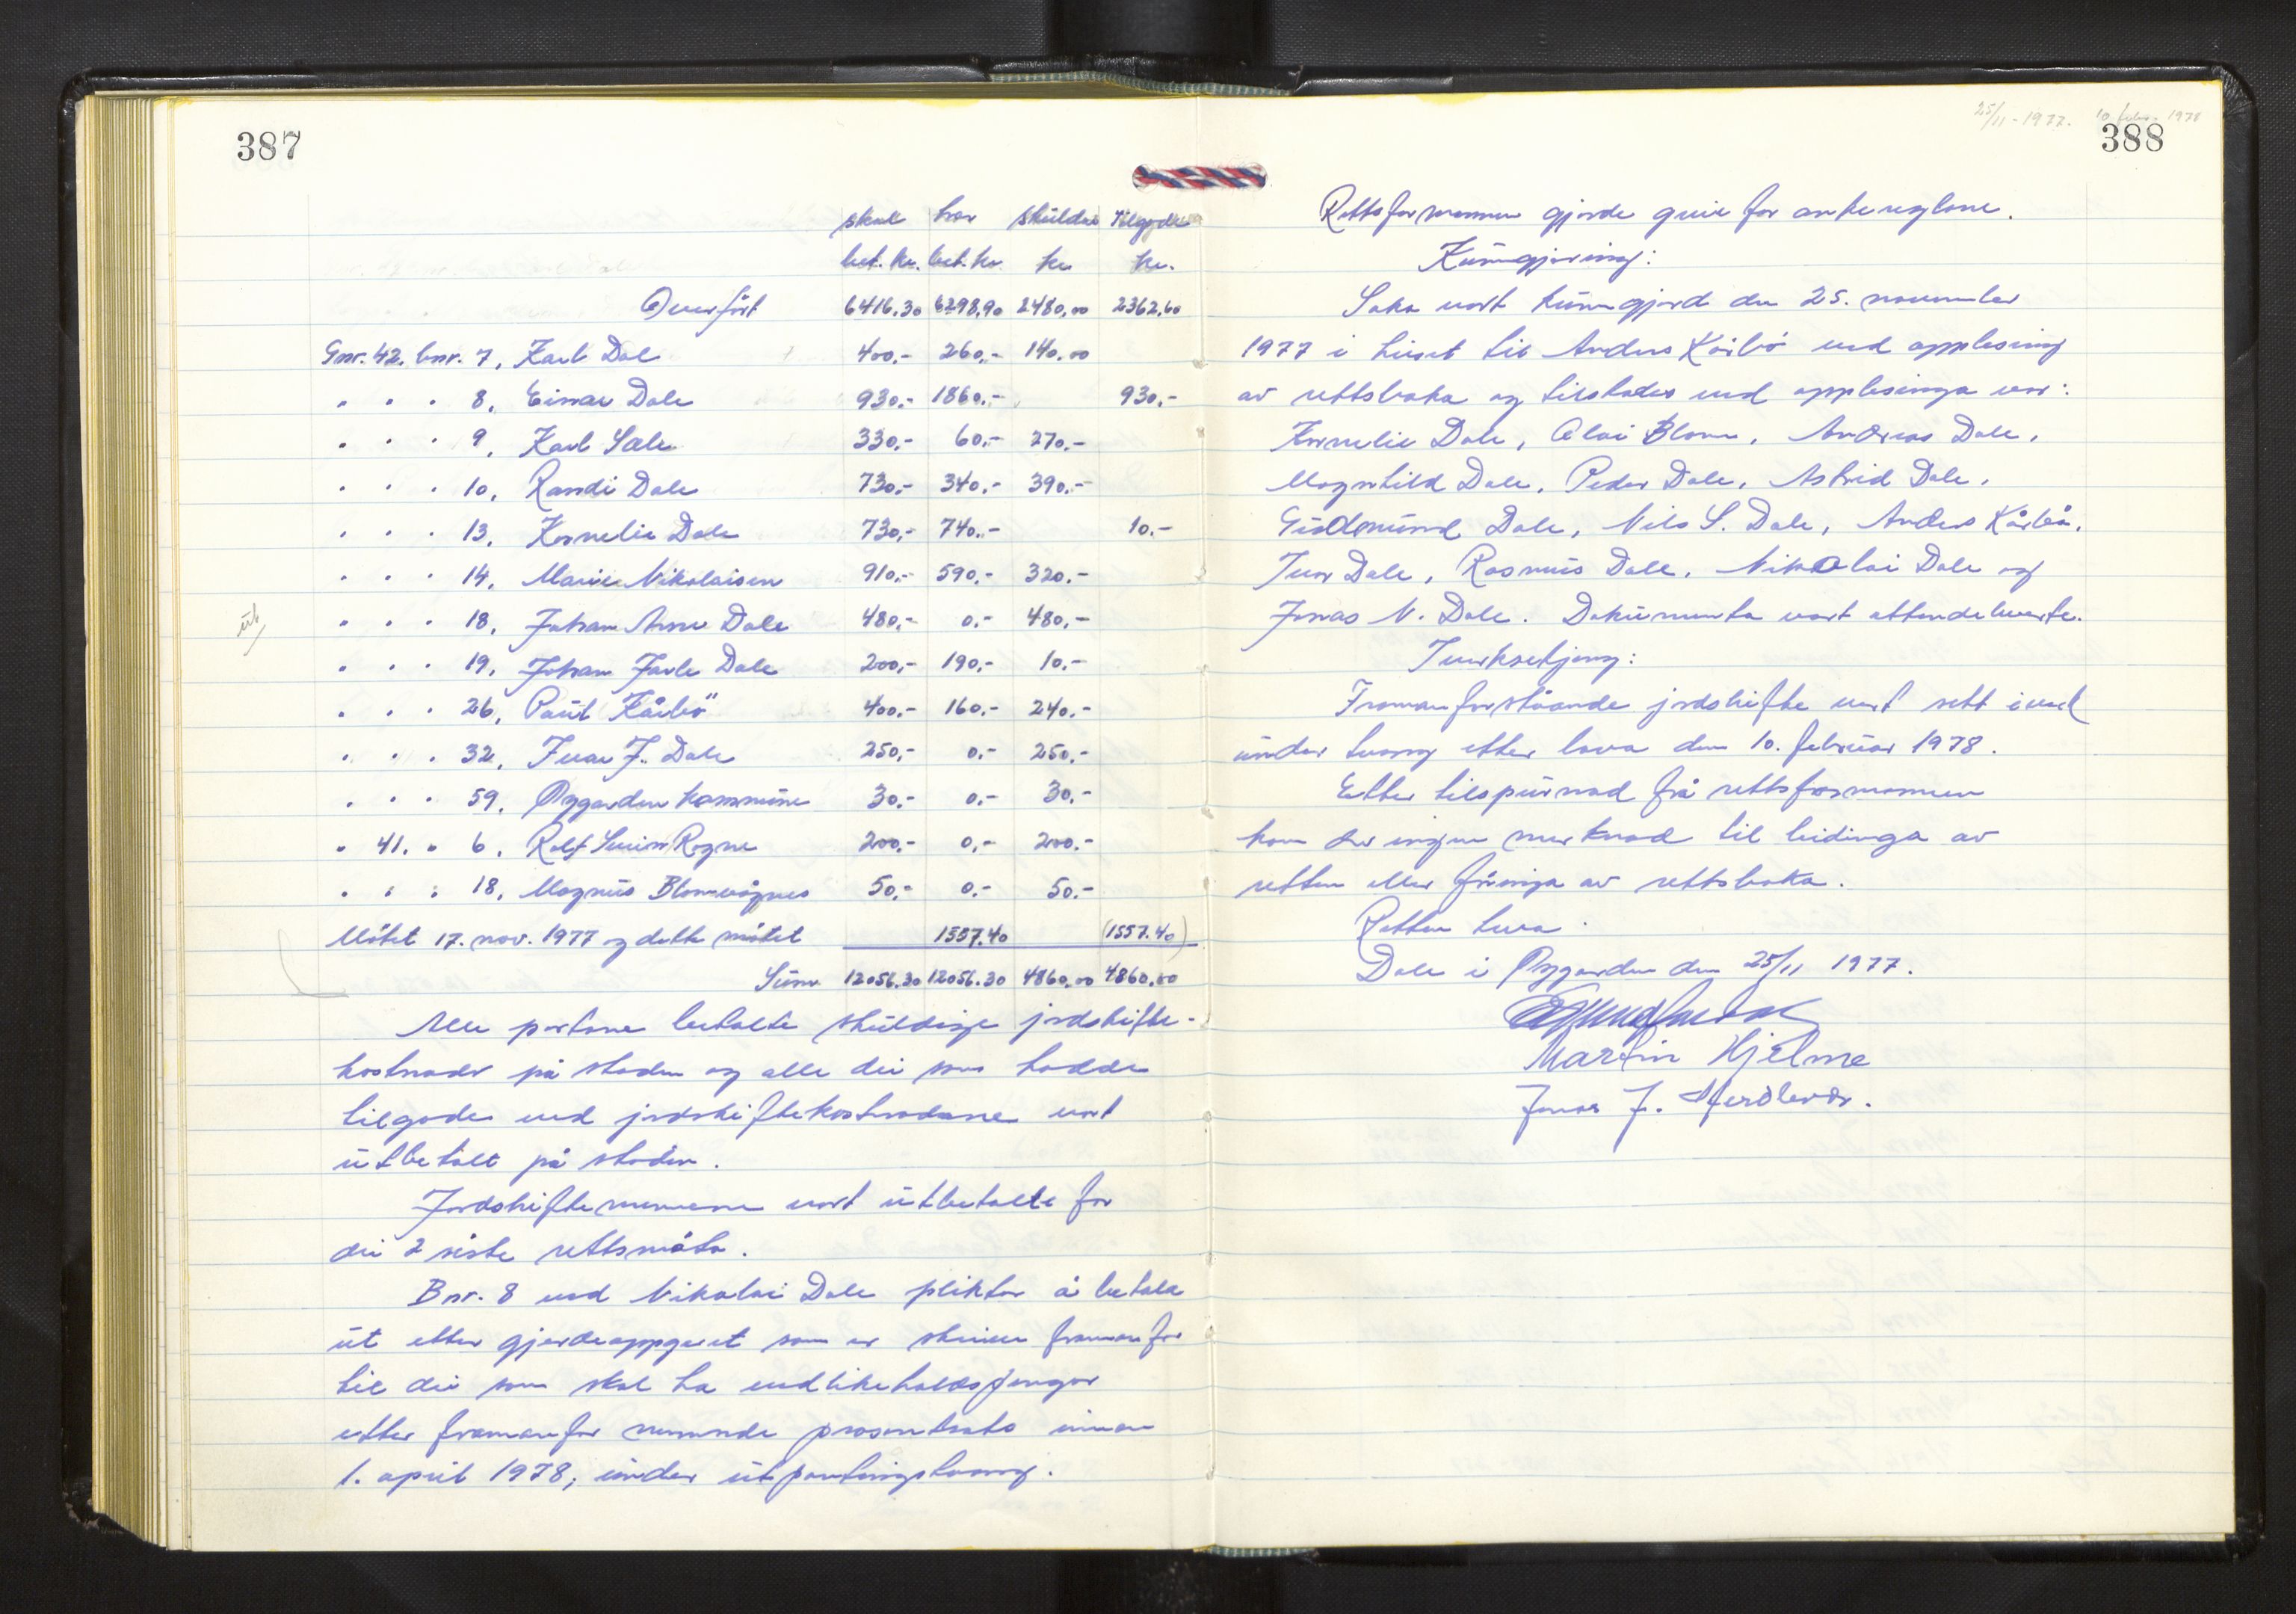 387
skal har skuldar Tilgode
bet. kr. bet. kr. kr kr.
Overført 6416.30 6298.90 2480.00 2362.60
Gnr. 42. bnr. 7, Karl Dale 400.- 260.- 140.00
" " " 8, Einar Dale 930.- 1860.- 930.-
" " " 9, Karl Sæle 330.- 60.- 270.-
" " " 10, Randi Dale 730.- 340.- 390.-
" " " 13, Kornelia Dale 730.- 740.- 10.-
" " " 14, Marie Nikolaisen 910.- 590.- 320.-
" " " 18, Johan Arne Dale 480.- 0.- 480.-
" " " 19, Johan Jarle Dale 200.- 190.- 10.-
" " " 26, Paul Kårbø 400.- 160.- 240.-
" " " 32, Ivar J. Dale 250.- 0.- 250.-
" " " 59, Øygarden kommune 30.- 0.- 30.-
" 41. " 6, Rolf Rogne 200.- 0.- 200.-
" " " 18, Magnus Blomvågnes 50.- 0.- 50.-
Møtet 17. nov. 1977 og dette møtet 1557.40 (1557.40)
Sum 12056.30 12056.30 4860.00 4860.00
Alle partane betalte skuldige jordskifte-
kostnader på staden og alle dei som hadde
tilgode ved jordskiftekostnadane vart
utbetalt på staden.
Jordskiftemennene vart utbetalte for
dei 2 siste rettsmøta.
Bnr. 8 ved Nikolai Dale pliktar å betala
ut etter gjerdeoppgjeret som er skrive framanfor
til dei som skal ha vedlikehaldspengar
etter framanfor nemnde prosentsats innan
1. april 1978, under utpantingstvang.
25/11 - 1977. 10. febr. 1978
388
Rettsformannen gjorde greie for ankereglane.
Kunngjering:
Saka vart kunngjord den 25. november
1977 i huset til Anders Kårbø ved opplesing
av rettsboka og tilstades ved opplesinga var:
Kornelie Dale, Olai Blom, Andreas Dale,
Magnhild Dale, Peder Dale, Astrid Dale,
Gudmund Dale, Nils S. Dale, Anders Kårbø,
Ivar Dale, Rasmus Dale, Nikolai Dale og
Jonas N. Dale. Dokumenta vart attendeleverte.
Iverksetjing:
Framanforståande jordskifte vert sett i verk
under tvang etter lova den 10. februar 1978.
Etter tilspurnad frå rettsformannen
kom der ingen merknad til leidinga av
retten eller føringa av rettsboka.
Retten heva.
Dale i Øygarden den 25/11 1977.
Martin Hjelme
Jonas J. Herdlevær.